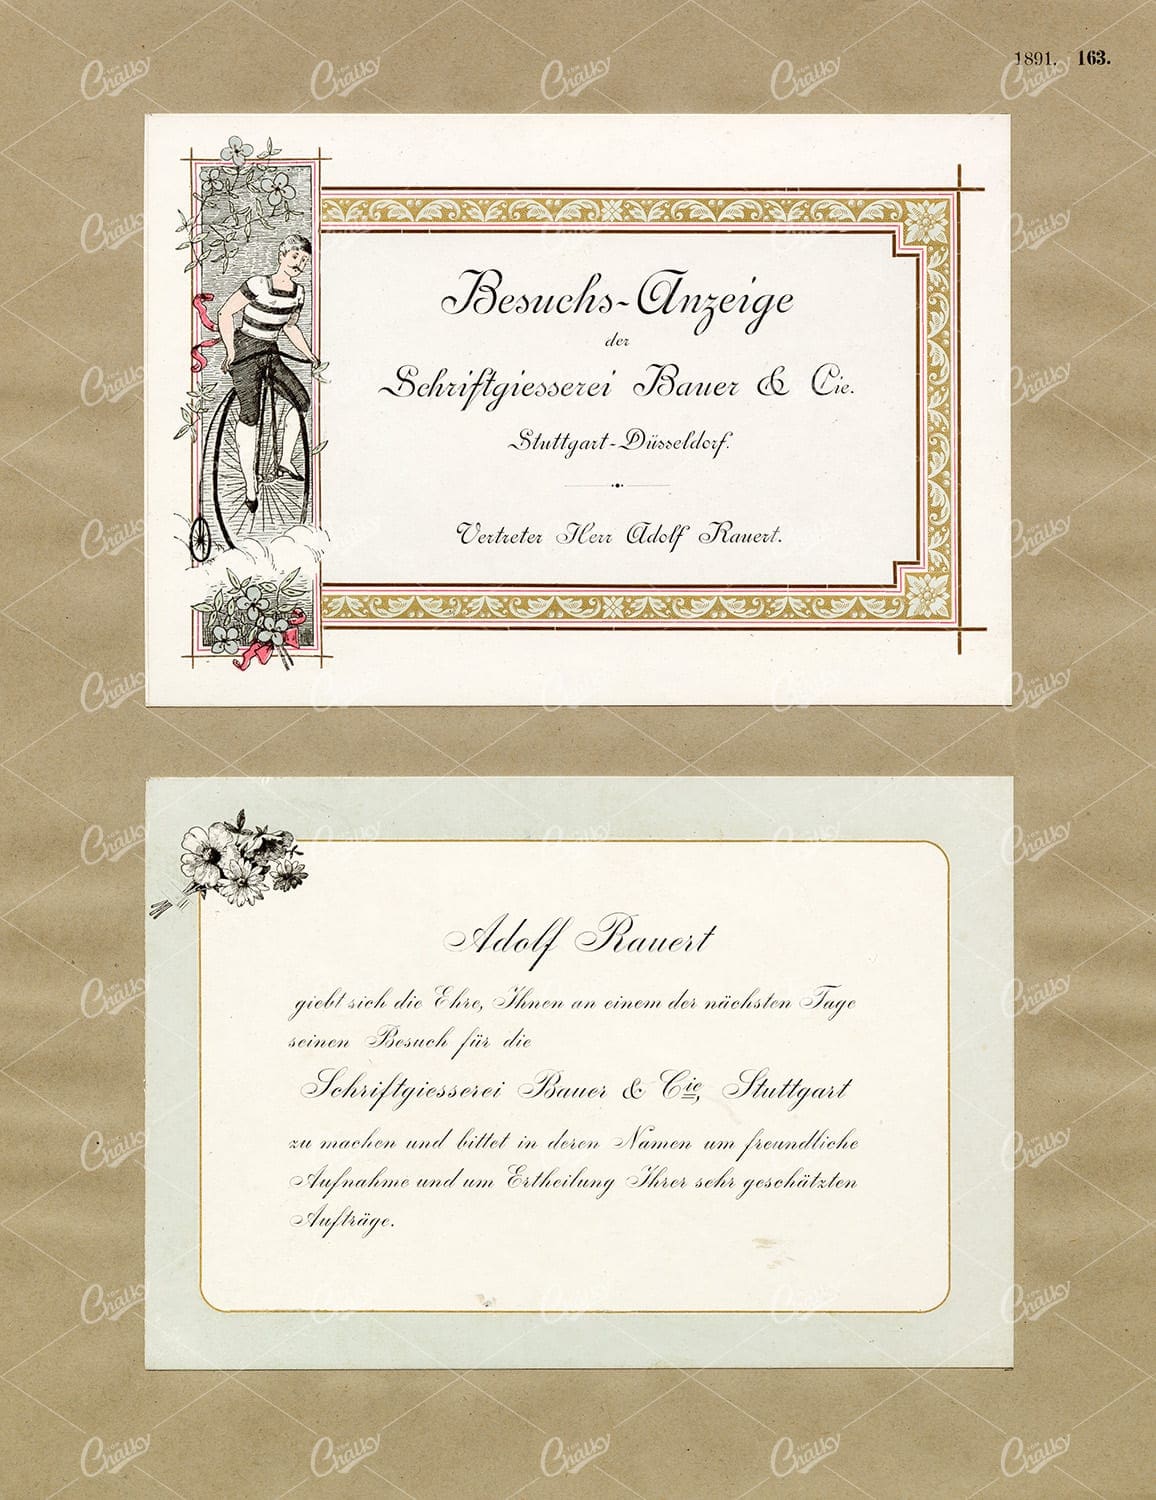 1891. 163.
Besuchs-Anzeige
der
Schriftgiesserei Bauer & Cie.
Stuttgart-Düsseldorf.
Vertreter Herr Adolf Rauert.
Adolf Rauert
giebt sich die Ehre, Ihnen an einem der nächsten Tage
seinen Besuch für die
Schriftgiesserei Bauer & Cie, Stuttgart
zu machen und bittet in deren Namen um freundliche
Aufnahme und um Ertheilung Ihrer sehr geschätzten
Aufträge.
Tom Chalky